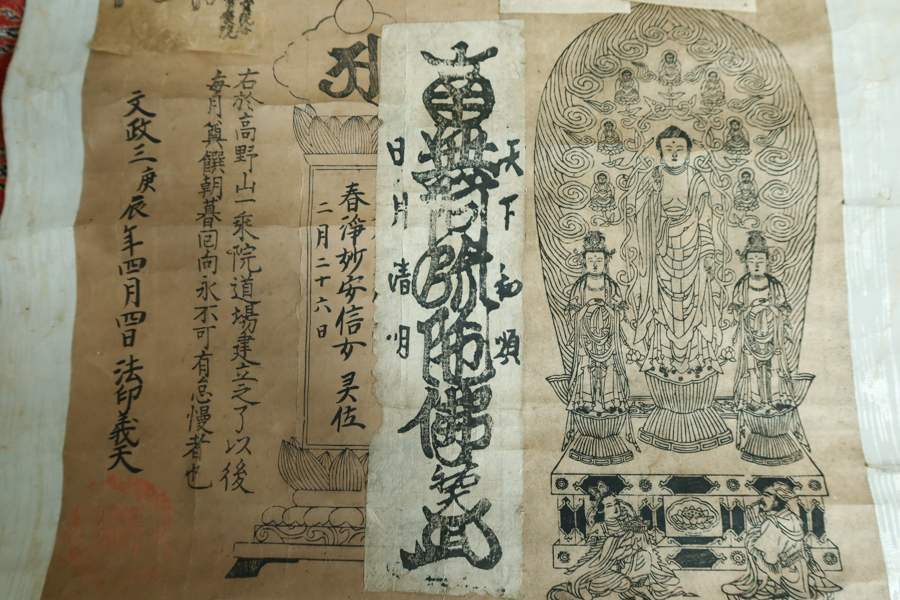 天下和順
南無阿弥陀佛
日月清明
春淨妙安信女 灵位
二月二十六日
右於高野山一乘院道場建立之了以後
每月奠饌朝暮回向永不可有怠慢者也
文政三庚辰年四月四日 法印義天